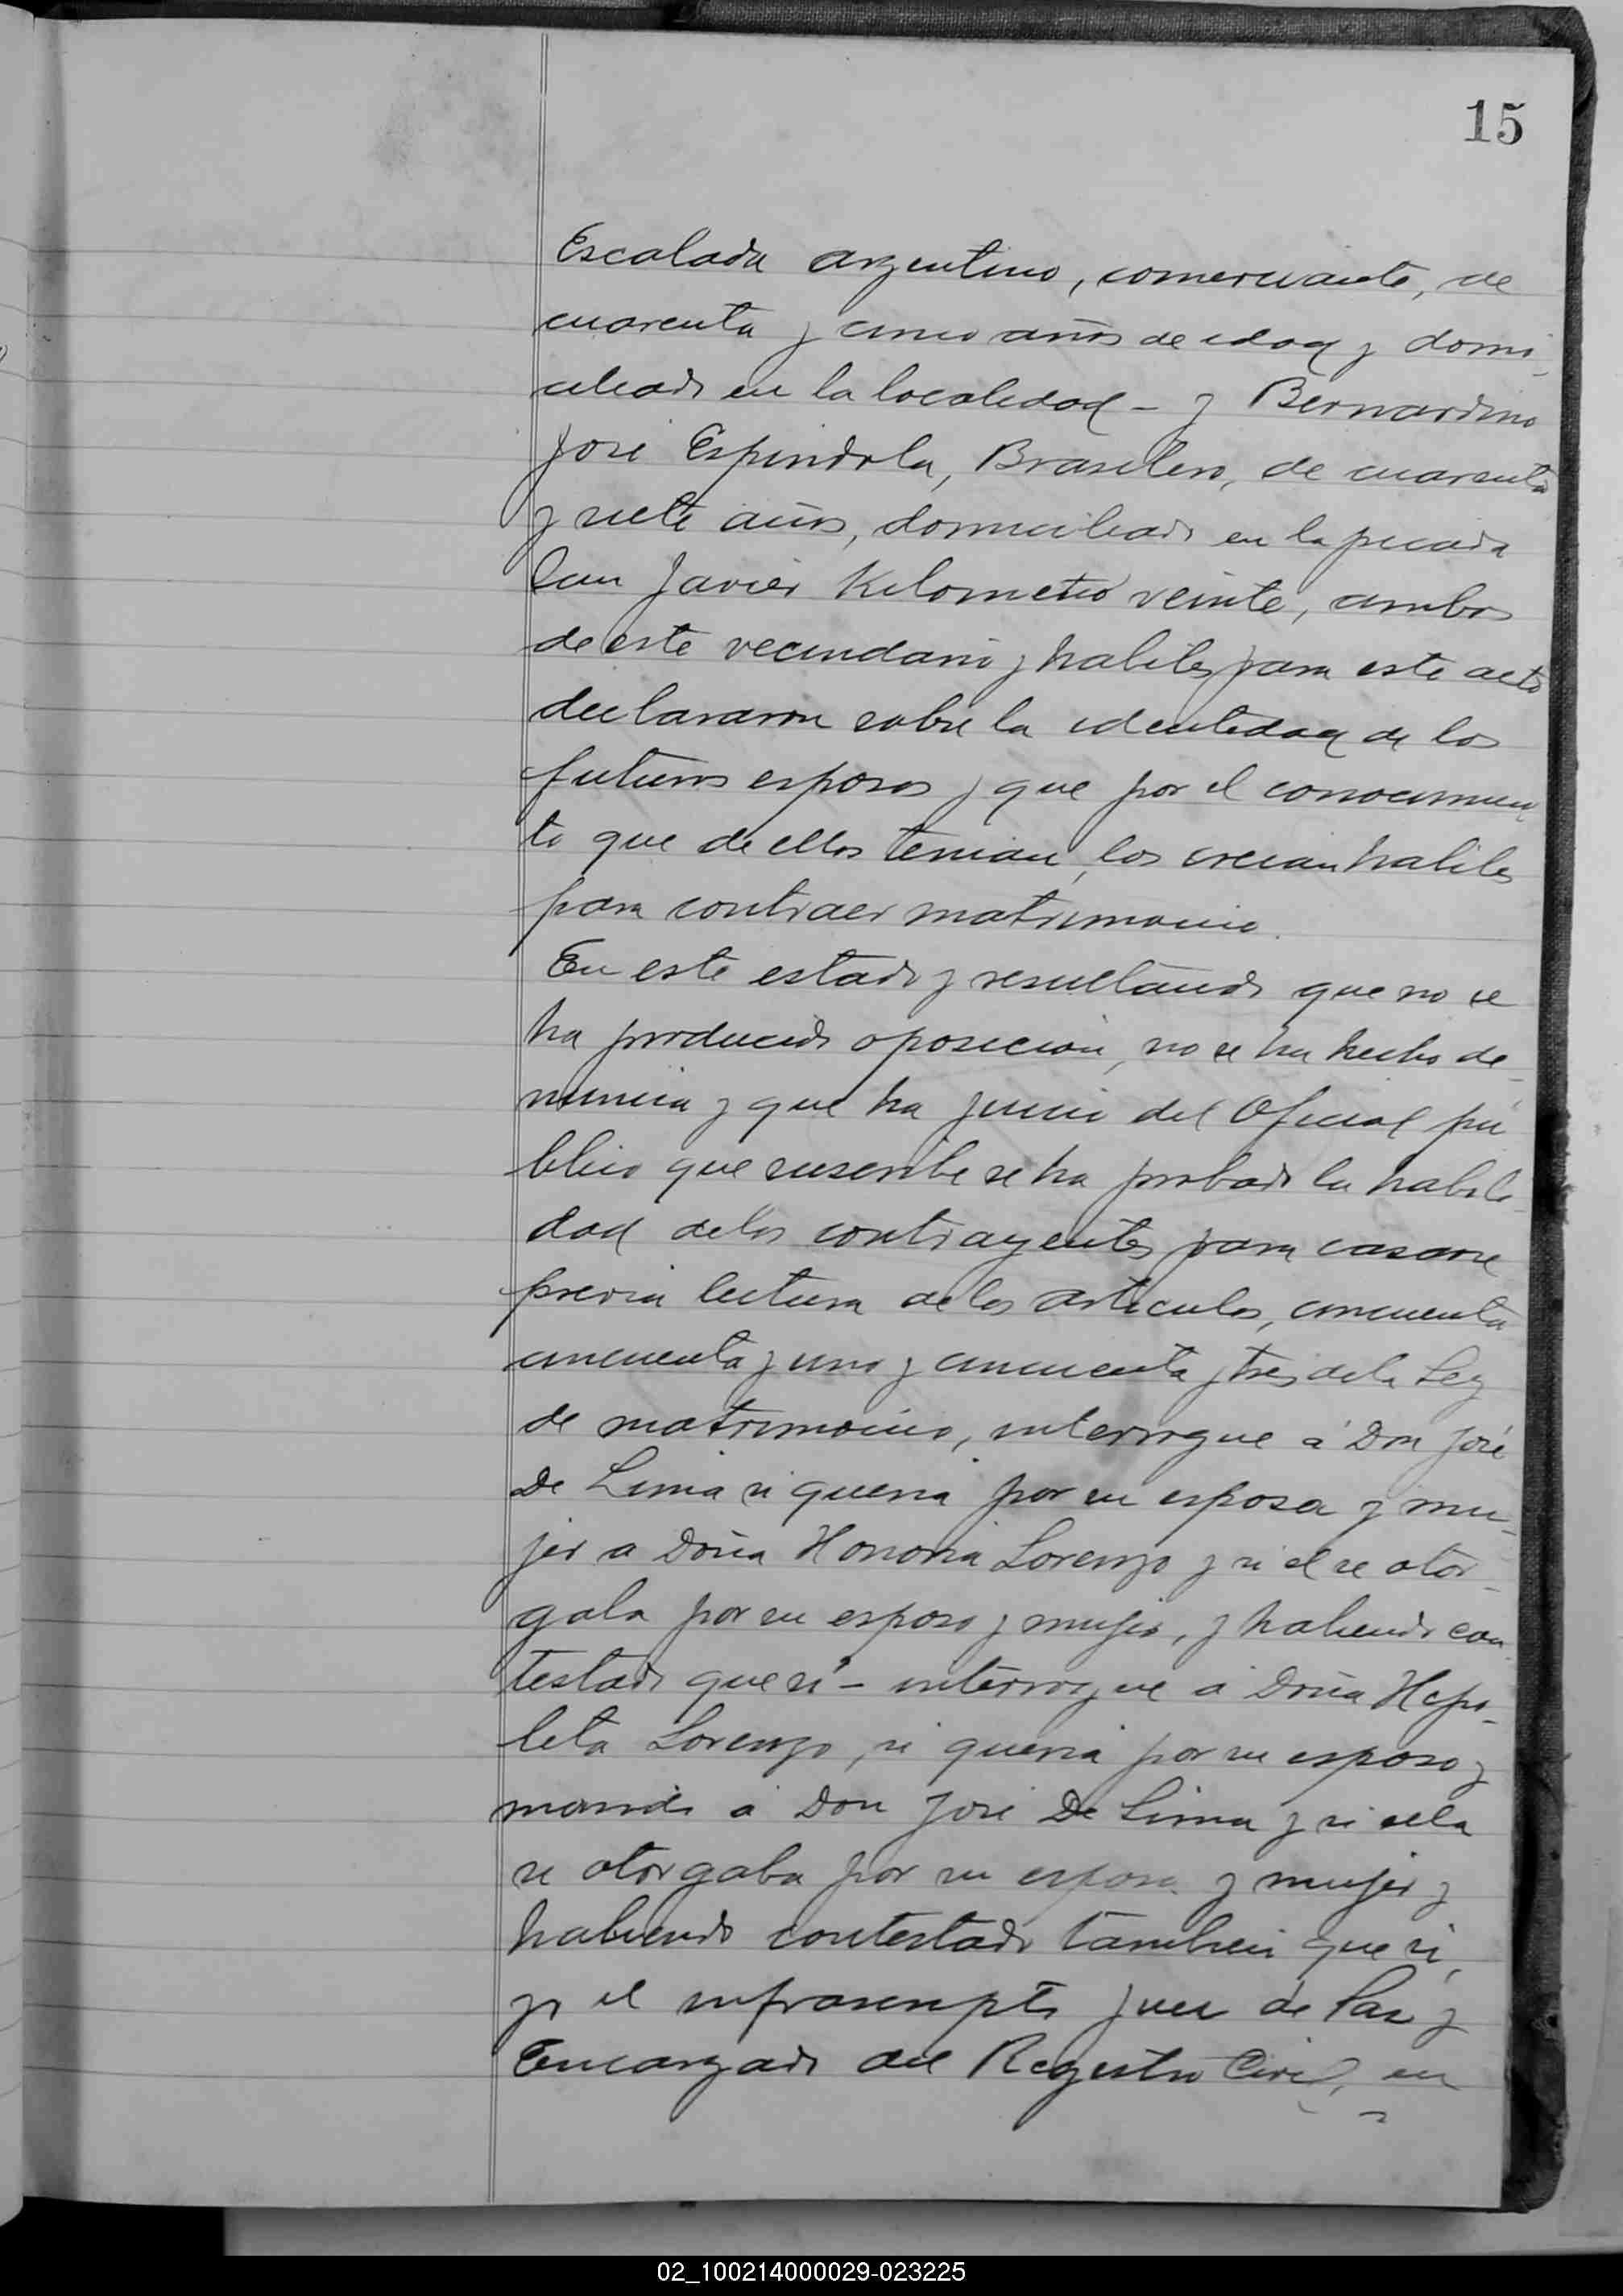 15
Escalada argentino, comerciante, de
cuarenta y cinco años de edad y domi-
ciliado en la localidad - y Bernardino
José Espindola, Brasilero, de cuarenta
y siete años, domiciliado en la picada
San Javier Kilometro veinte, ambos
de este vecindario y habiles para este acto
declararon sobre la identidad de los
futuros esposos y que por el conocimien
to que de ellos tenian, los creian habiles
para contraer matrimonio.
En este estado y resultando que no se
ha producido oposicion, no se ha hecho de-
nuncia y que ha juicio del Oficial pú
blico que suscribe se ha probado la habili-
dad de los contrayentes para casarse
previa lectura de los articulos, cincuenta
cincuenta y uno y cincuenta y tres de la Ley
de matrimonio, interrogue á Don José
De Lima si queria por su esposa y mu-
jer a Doña Honoria Lorenzo y si el se otor-
gaba por su esposo y mujer, y habiendo con-
testado que si - interrogue á Doña Hepo-
leta Lorenzo, si queria por su esposo y
marido á Don José De Lima y si ella
se otorgaba por su esposa y mujer y
habiendo contestado tambien que si,
yo el infrascripto Juez de Paz y
Encargado del Registro Civil, en
02_100214000029-023225